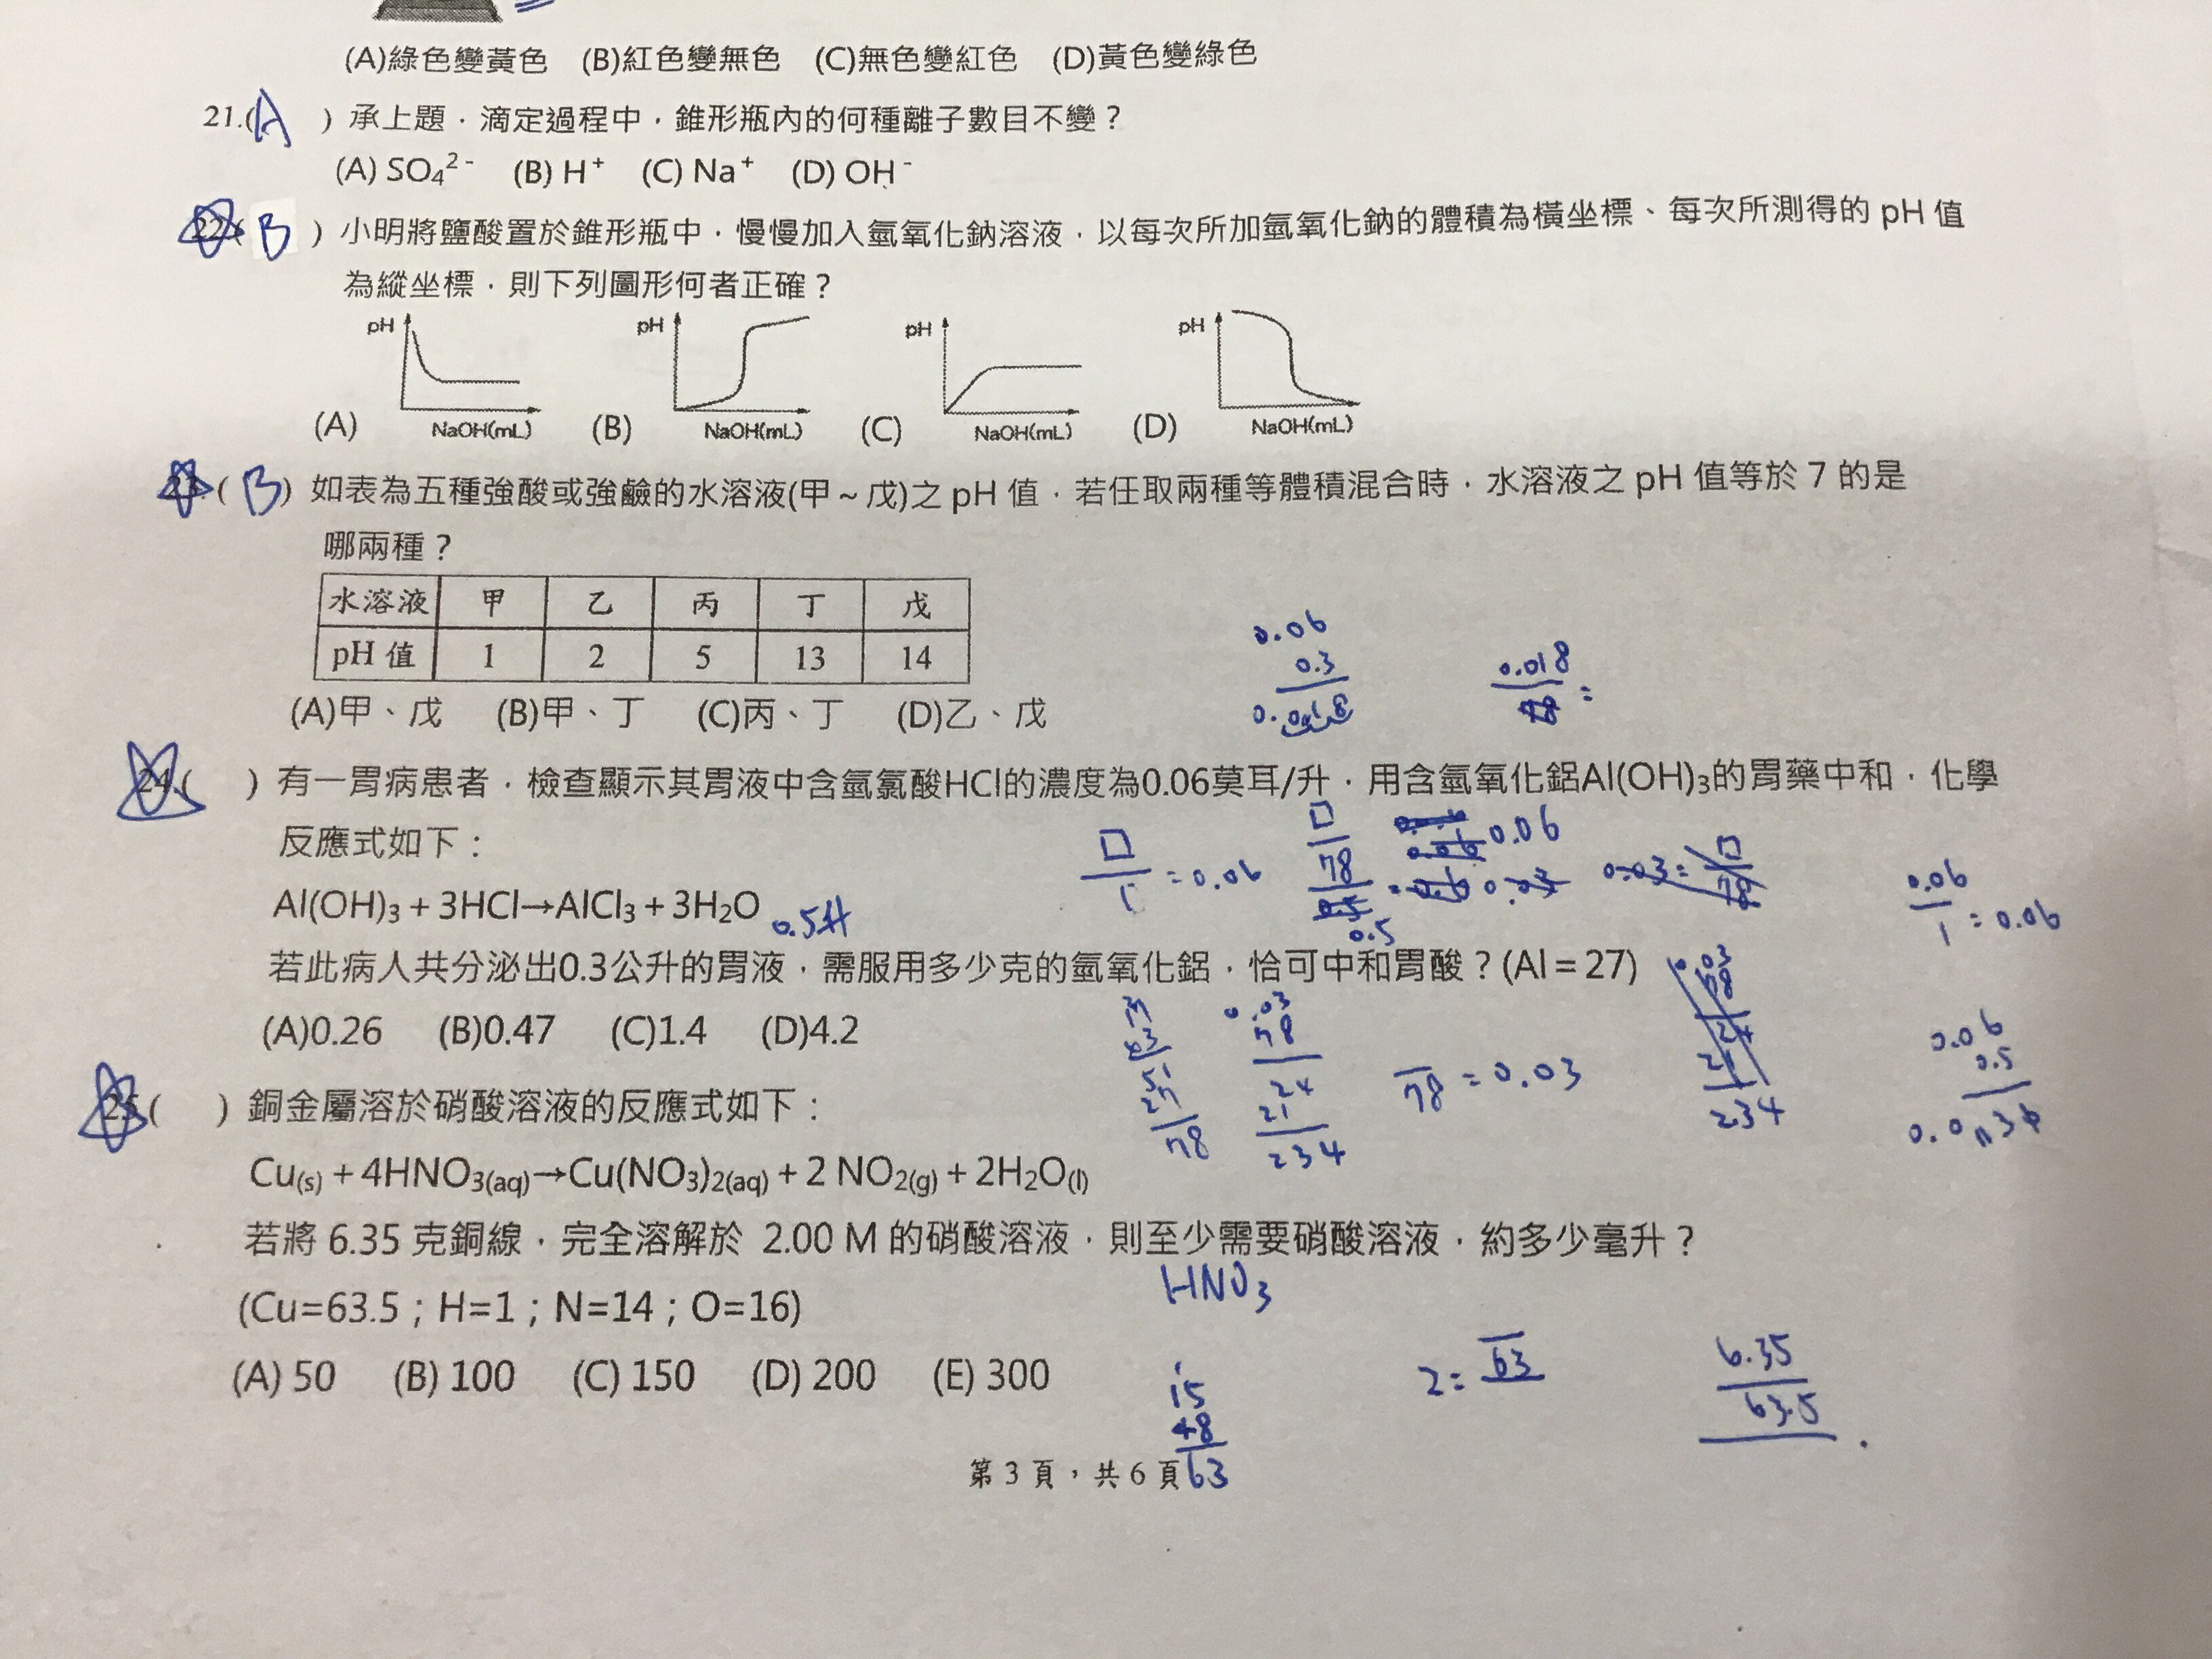 (A)綠色變黃色 (B)紅色變無色 (C)無色變紅色 (D)黃色變綠色
21.(A) 承上題，滴定過程中，錐形瓶內的何種離子數目不變？
(A) SO₄²⁻ (B) H⁺ (C) Na⁺ (D) OH⁻
22.(B) 小明將鹽酸置於錐形瓶中，慢慢加入氫氧化鈉溶液，以每次所加氫氧化鈉的體積為橫坐標、每次所測得的 pH 值
為縱坐標，則下列圖形何者正確？
pH pH pH pH
(A) NaOH(mL) (B) NaOH(mL) (C) NaOH(mL) (D) NaOH(mL)
23.(B) 如表為五種強酸或強鹼的水溶液(甲~戊)之 pH 值，若任取兩種等體積混合時，水溶液之 pH 值等於 7 的是
哪兩種？
水溶液 甲 乙 丙 丁 戊
pH 值 1 2 5 13 14
(A)甲、戊 (B)甲、丁 (C)丙、丁 (D)乙、戊
0.06
0.3
0.018
0.018
78 =
24.( ) 有一胃病患者，檢查顯示其胃液中含氫氯酸HCl的濃度為0.06莫耳/升，用含氫氧化鋁Al(OH)₃的胃藥中和，化學
反應式如下：
□
1 = 0.06
□
78
0.5
0.06
0.06
1 = 0.06
Al(OH)₃ + 3HCl→AlCl₃ + 3H₂O 0.5升
若此病人共分泌出0.3公升的胃液，需服用多少克的氫氧化鋁，恰可中和胃酸？(Al = 27)
(A)0.26 (B)0.47 (C)1.4 (D)4.2
51
27
78
0.03
78
24
21
234
78 = 0.03
0.03
78
24
21
234
0.06
0.5
25.( ) 銅金屬溶於硝酸溶液的反應式如下：
Cu(s) + 4HNO₃(aq)→Cu(NO₃)₂(aq) + 2 NO₂(g) + 2H₂O(l)
若將 6.35 克銅線，完全溶解於 2.00 M 的硝酸溶液，則至少需要硝酸溶液，約多少毫升？
HNO₃
(Cu=63.5；H=1；N=14；O=16)
(A) 50 (B) 100 (C) 150 (D) 200 (E) 300
15
48
63
2 = 63
6.35
63.5
第 3 頁，共 6 頁